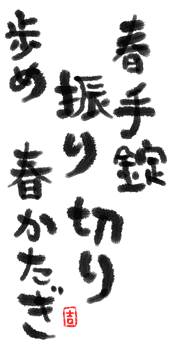 春手錠
振り切り
歩め 春かたぎ
吉